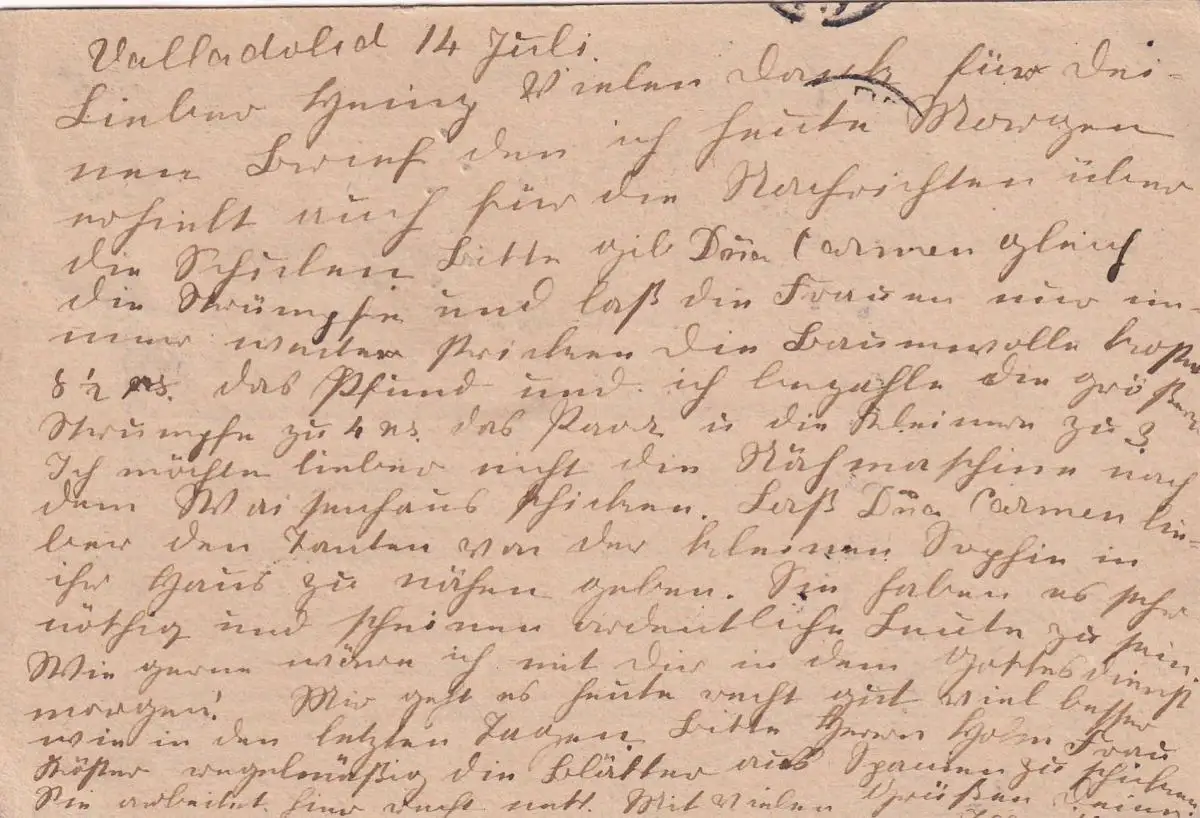 Valladolid 14 Juli.
Lieber Heinz Vielen Dank für Dei-
nen Brief den ich heute Morgen
erhielt auch für die Nachrichten über
die Schulen Bitte gib Dña Carmen gleich
die Strümpfe und laß die Frauen nur im-
mer weiter stricken Die Baumwolle kostet
8 1/2 rs. das Pfund und ich bezahle die größeren
Strumpfe zu 4 rs. das Paar u die Kleinere zu 3
Ich möchte lieber nicht die Nähmaschine nach
dem Waisenhaus schicken. Laß Dña Carmen lie-
ber den Tanten von der kleinen Sophie in
ihr Haus zu nähen geben. Sie haben es sehr
nöthig und scheinen ordentliche Leute zu sein.
Wie gerne wäre ich mit Dir in dem Gottesdienst
morgen! Mir geht es heute recht gut viel besser
wie in den letzten Tagen. Bitte Herrn Frau
Köster regelmäßig die Blätter aus Spanien zu schicken
Sie arbeitet hier recht nett. Mit vielen Grüßen Deine